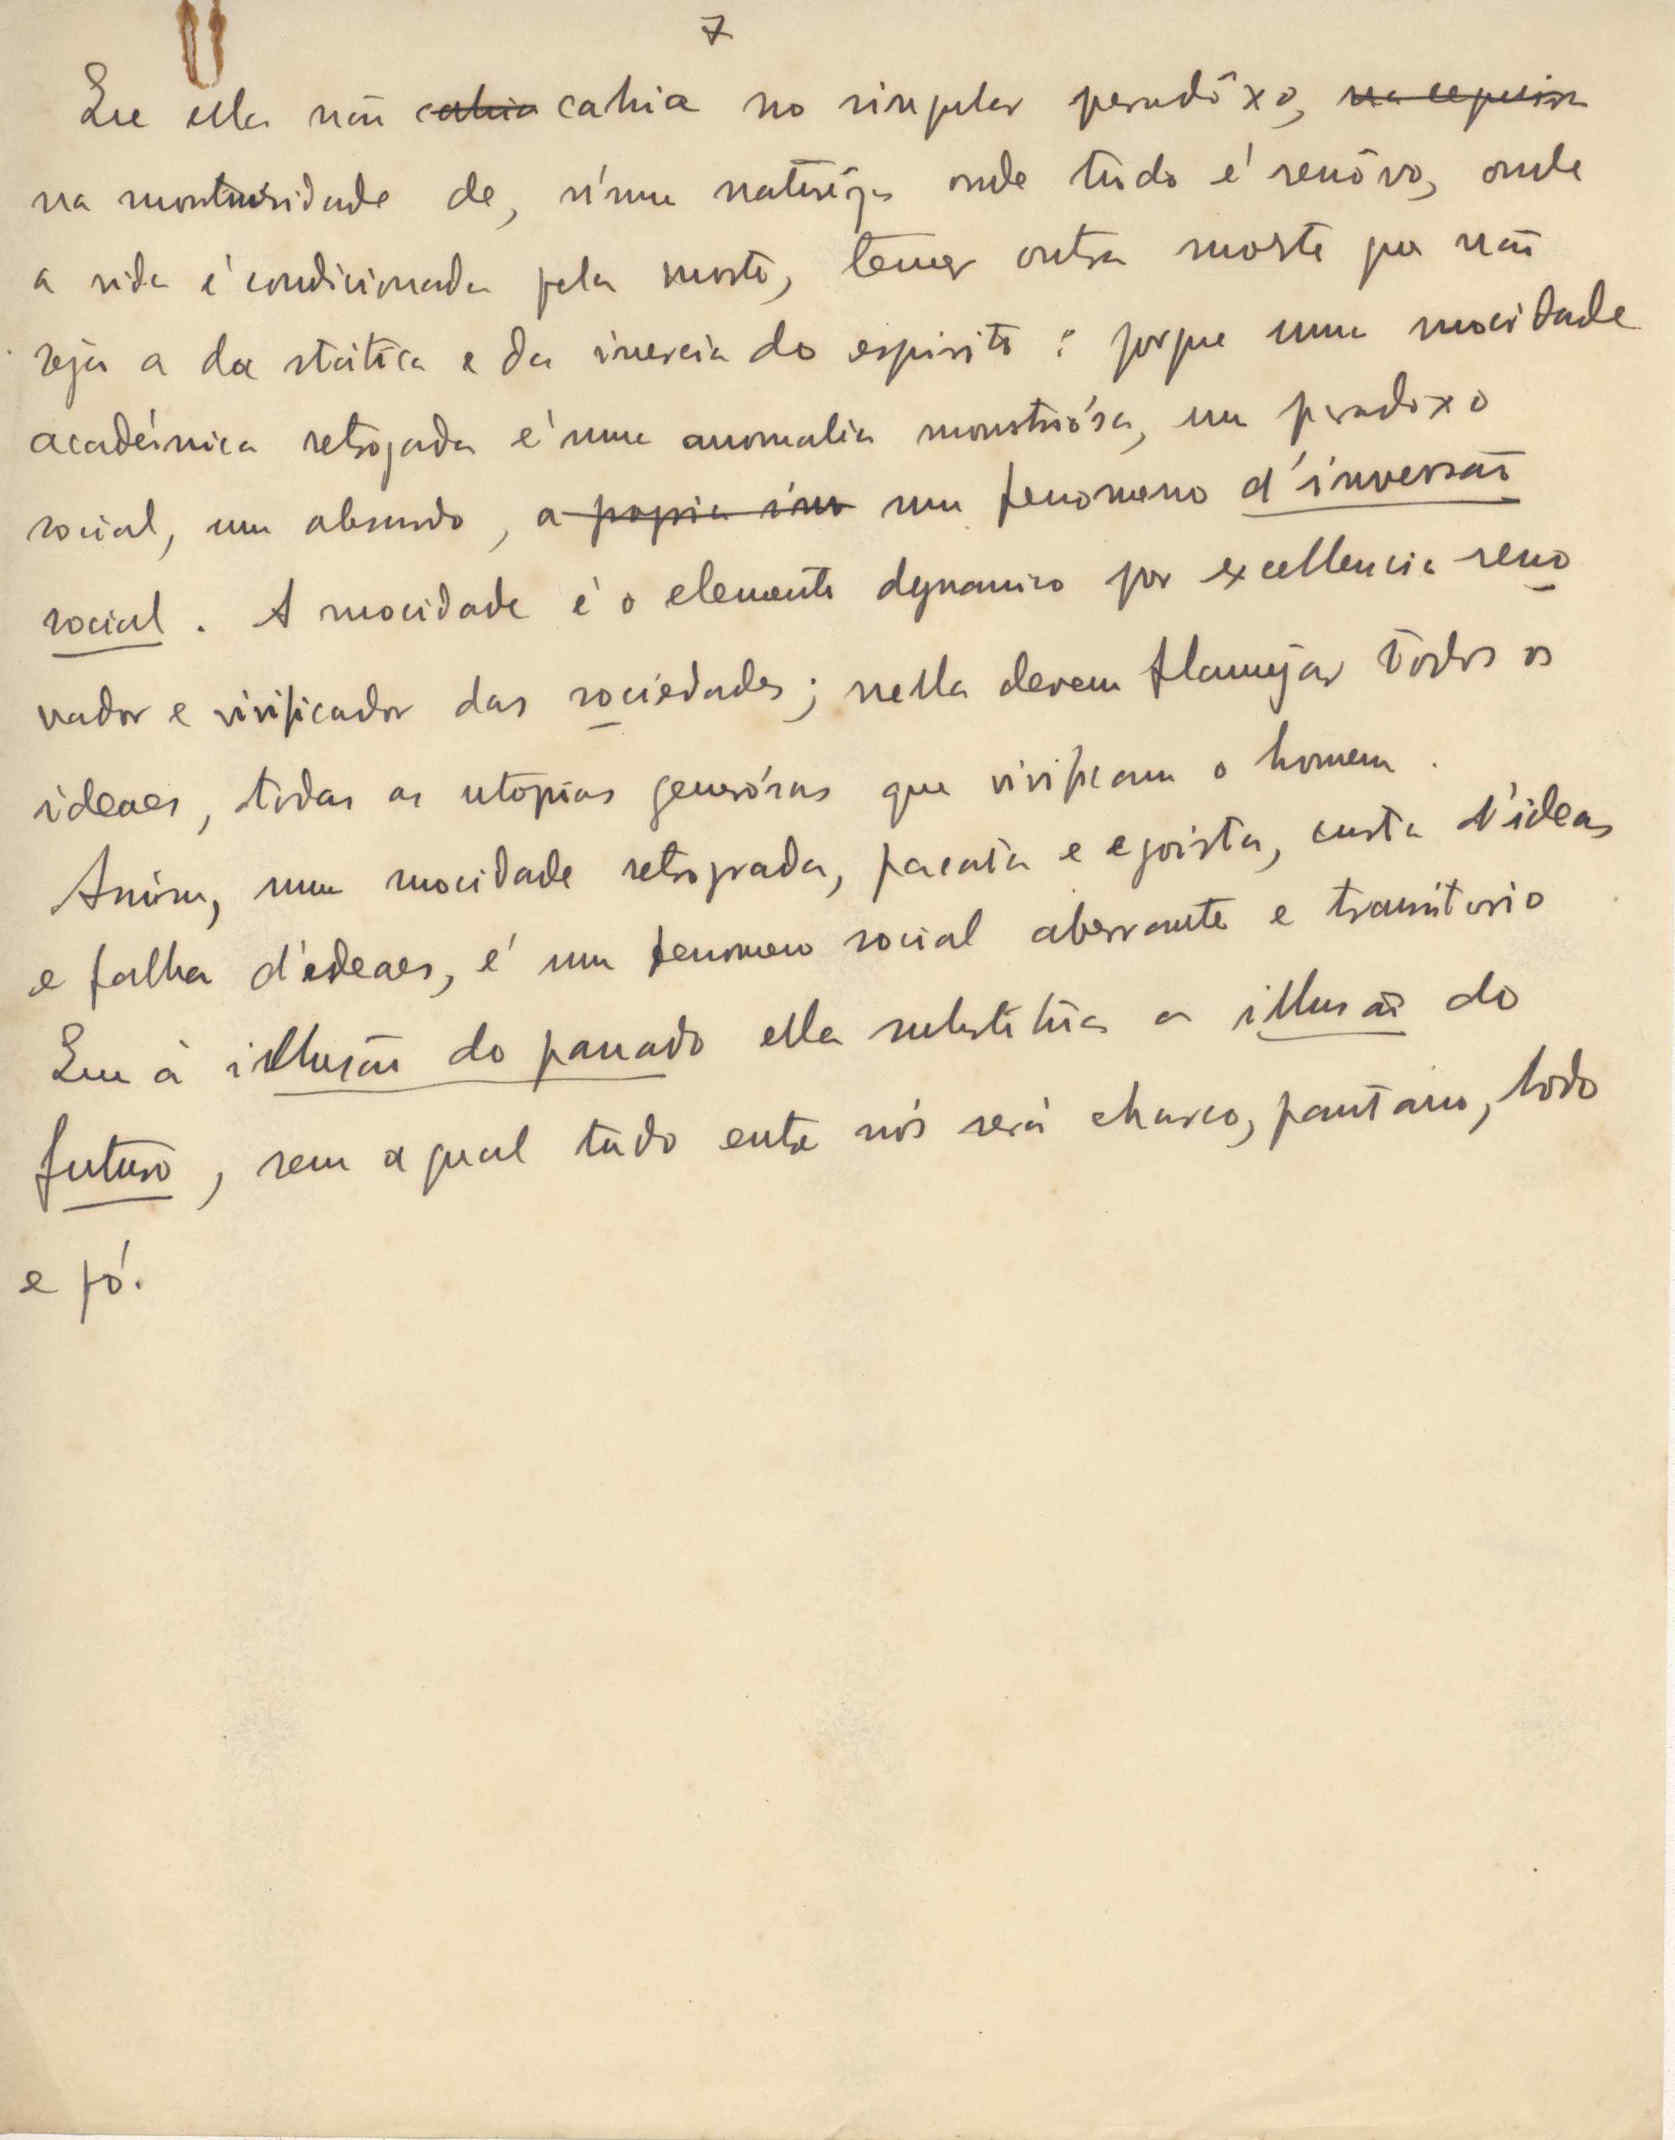 7
Que ella não cahia cahia no singular paradôxo,
na monstruosidade de, n'uma naturêza onde tudo é renôvo, onde
a vida é condicionada pela morte, temer outra morte que não
seja a da stática e da inercia do espirito: porque uma mocidade
académica retrogada é uma anomalia monstruósa, um paradoxo
social, um absurdo, a propria inv um fenomeno d'inversão
social. A mocidade é o elemento dynamico por excellencia reno
vador e vivificador das sociedades; nella devem flamejar todos os
ideaes, todas as utopias generósas que vivificam o homem.
Assim, uma mocidade retrograda, pacata e egoista, curta d'ideas
e falha d'ideaes, é um fenomeno social aberrante e transitorio
Que á illusão do passado ella substitúa a illusão do
futuro, sem a qual tudo entre nós será charco, pantano, lodo
e pó.